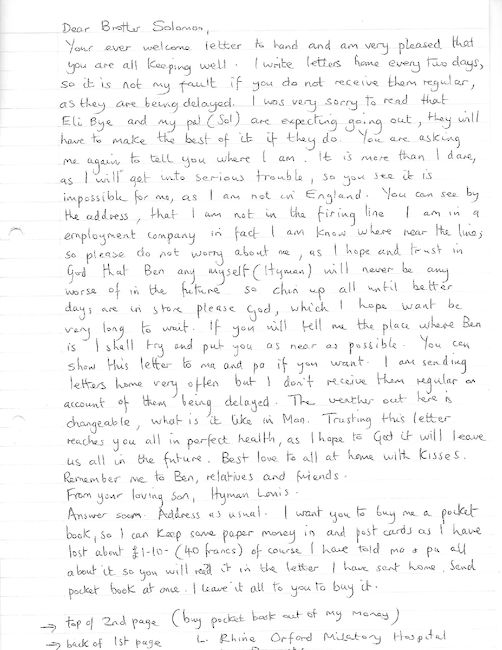 Dear Brother Solomon,
Your ever welcome letter to hand and am very pleased that
you are all keeping well. I write letters home every two days,
so it is not my fault if you do not receive them regular,
as they are being delayed. I was very sorry to read that
Eli Bye and my pal (Sol) are expecting going out, they will
have to make the best of it if they do. You are asking
me again to tell you where I am. It is more than I dare,
as I will get into serious trouble, so you see it is
impossible for me, as I am not in England. You can see by
the address, that I am not in the firing line I am in a
employment company in fact I am know where near the lines
so please do not worry about me, as I hope and trust in
God that Ben any myself (Hyman) will never be any
worse of in the future so chin up all until better
days are in store please God, which I hope want be
very long to wait. If you will tell me the place where Ben
is I shall try and put you as near as possible. You can
show this letter to ma and pa if you want. I am sending
letters home very often but I don't receive them regular on
account of them being delayed. The weather out here is
changeable, what is it like in Man. Trusting this letter
reaches you all in perfect health, as I hope to God it will leave
us all in the future. Best love to all at home with kisses.
Remember me to Ben, relatives and friends.
From your loving son, Hyman Lewis.
Answer soon. Address as usual. I want you to buy me a pocket
book, so I can keep some paper money in and post cards as I have
lost about £1-10- (40 francs) of course I have told ma & pa all
about it so you will read it in the letter I have sent home. Send
pocket book at once. I leave it all to you to buy it.
→ top of 2nd page (buy pocket book out of my money)
→ back of 1st page L. Rhine Orford Military Hospital